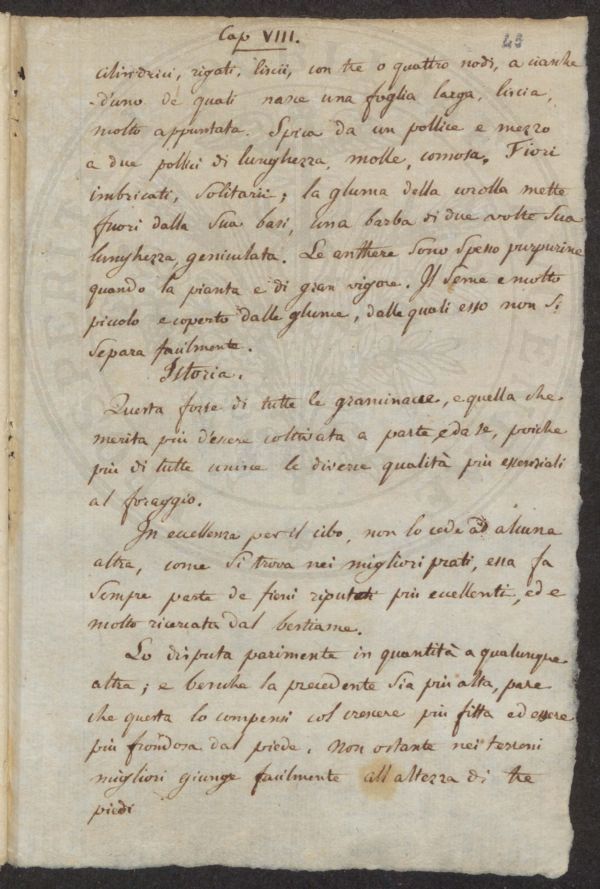 Cap VIII.
43
cilindrici, rigati, liscii, con tre o quattro nodi, a cias che
d'uno de quali nasce una foglia larga, liscia,
molto appuntata. Spica da un pollice e mezzo
a due pollici di lunghezza, molle, comosa. Fiori
imbricati, solitarii; la gluma della corolla mette
fuori dalla sua basi, una barba di due volte sua
lunghezza, geniculata. Le anthere sono spesso purpurine
quando la pianta è di gran vigore. Il seme e molto
piccolo e coperto dalle glume, dalle quali esso non si
separa facilmente.
Istoria.
Questa forse di tutte le graminacee, e quella che
merita più d'essere coltivata a parte, e da se, poiche
più di tutte unisce le diverse qualità più essenziali
al foraggio.
In eccellenza per il cibo, non lo cede ad alcuna
altra, come si trova nei migliori prati, essa fa
sempre parte de fieni riputati più eccellenti, ed e
molto ricercata dal bestiame.
Lo disputa parimente in quantità a qualunque
altra; e benche la precedente sia più alta, pare
che questa lo compensi col crescere più fitta ed essere
più frondosa dal piede. Non ostante nei terreni
migliori giunge facilmente all altezza di tre
piedi